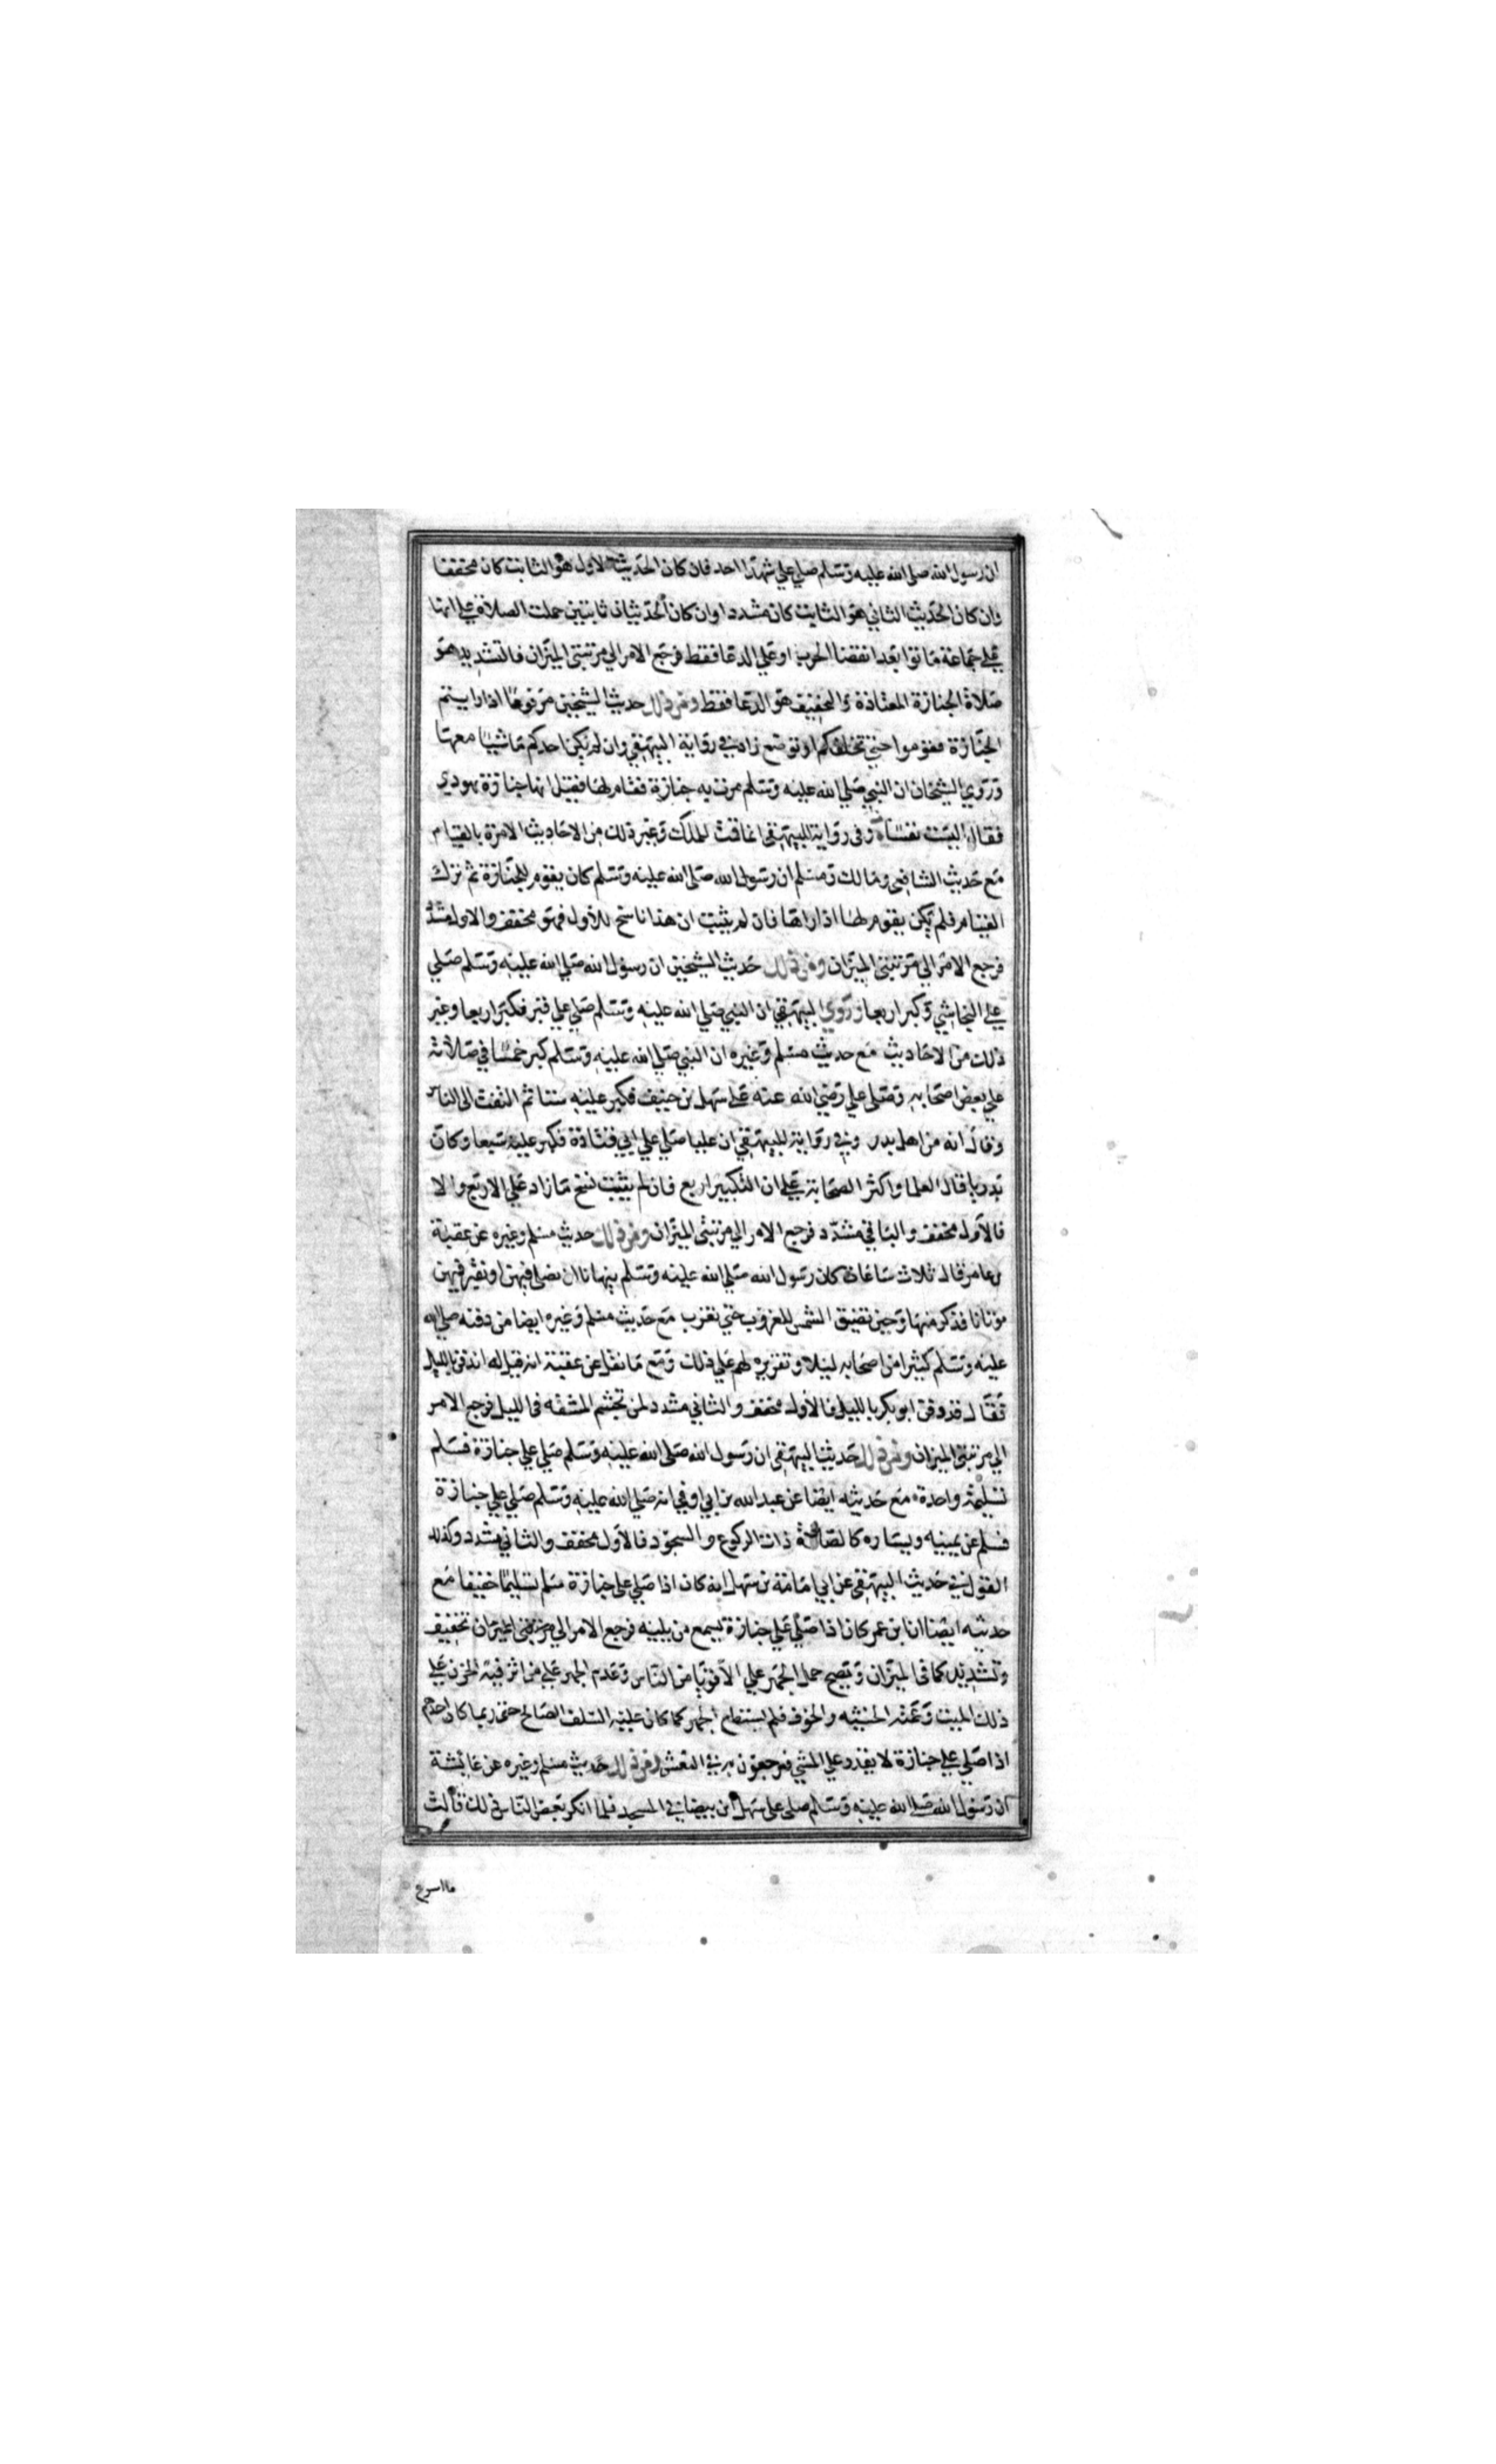 ان رسول الله صلى الله عليه وسلم صلي علي شهدا احد فان كان الحديث الاول هو الثابت كان مخففا
وان كان الحديث الثاني هو الثابت كان مشددا وان كان الحديثان ثابتين حملت الصلاة في علي انها
علي جماعة ماتوا بعد انقضا الحرب او علي الدعا فقط فرجع الامر الي مرتبتي الميزان فالتشديد هو
صلاة الجنازة المعتادة والتخفيف هو الدعا فقط ومن ذلك حديث الشيخين مرفوعا اذا رايتم
الجنازة فقوموا حتي تخلفكم او توضع زاد في رواية البيهقي وان لم يكن احدكم ماشيا معها
وروي الشيخان ان النبي صلي الله عليه وسلم مرت به جنازة فقام لها فقيل انها جنازة يهودي
فقال اليست نفسا وفي رواية للبيهقي انما قمت للملك وغير ذلك من الاحاديث الامرة بالقيام
مع حديث الشافعي ومالك ومسلم ان رسول الله صلي الله عليه وسلم كان يقوم للجنازة ثم ترك
القيام فلم يكن يقوم لها اذا راها فان لم يثبت ان هذا ناسخ للاول فهو مخفف والاول مشدد
فرجع الامر الي مرتبتي الميزان ومن ذلك حديث الشيخين ان رسول الله صلي الله عليه وسلم صلي
علي النجاشي وكبر اربعا وروي البيهقي ان النبي صلي الله عليه وسلم صلي علي قبر فكبر اربعا وغير
ذلك من الاحاديث مع حديث مسلم وغيره ان النبي صلي الله عليه وسلم كبر خمسا في صلاته
علي بعض اصحابه وصلي علي رضي الله عنه علي سهل بن حنيف فكبر عليه ستا ثم التفت الي الناس
وقال انه من اهل بدر وفي رواية للبيهقي ان عليا صلي علي ابي قتادة فكبر عليه سبعا وكان
بدريا قال العلما واكثر الصحابة علي ان التكبير اربع فان لم يثبت نسخ ما زاد علي الاربع والا
فالاول مخفف والباقي مشدد فرجع الامر الي مرتبتي الميزان ومن ذلك حديث مسلم وغيره عن عقبة
بن عامر قال ثلاث ساعات كان رسول الله صلي الله عليه وسلم ينهانا ان نصلي فيهن او نقبر فيهن
موتانا فذكر منها وحين تضيق الشمس للغروب حتي تغرب مع حديث مسلم وغيره ايضا من دفنه صلي الله
عليه وسلم كثيرا من اصحابه ليلا وتقريره لهم علي ذلك ومع ما نقل عن عقبة انه قيل له اندفن بالليل
فقال قد دفن ابو بكر بالليل فالاول مخفف والثاني مشدد لمن تجشم المشقه في الليل فرجع الامر
الي مرتبتي الميزان ومن ذلك حديث البيهقي ان رسول الله صلي الله عليه وسلم صلي علي جنازة فسلم
تسليمة واحدة مع حديثه ايضا عن عبد الله بن ابي اوفي انه صلي الله عليه وسلم صلي علي جنازة
فسلم عن يمينه ويساره كالصلاة ذات الركوع والسجود فالاول مخفف والثاني مشدد وكذلك
القول في حديث البيهقي عن ابي امامة بن سهل انه كان اذا صلي علي جنازة سلم تسليما خفيفا مع
حديثه ايضا ان ابن عمر كان اذا صلي علي جنازة يسمع من يليه فرجع الامر الي مرتبتي الميزان تخفيف
وتشديد كما في الميزان ويصح حمل الجهر علي الاقويا من الناس وعدم الجهر علي من اثر فيه الحزن علي
ذلك الميت وعمته الخشيه والخوف فلم يستطع الجهر كما كان عليه السلف الصالح حتي ربما كان احدهم
اذا صلي علي جنازة لا يقدر علي المشي فيرجعون به في النعش ومن ذلك حديث مسلم وغيره عن عائشة
ان رسول الله صلي الله عليه وسلم صلي علي سهل ابن بيضا في المسجد فلما انكر بعض الناس ذلك قالت
ما اسرع